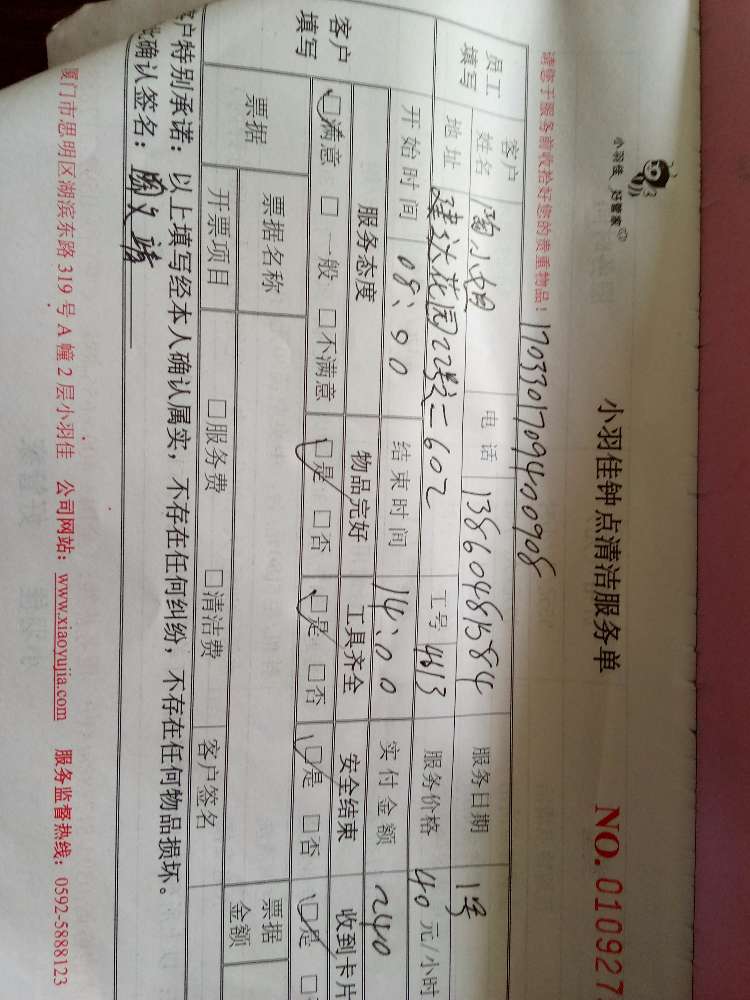 小羽佳 好管家
小羽佳钟点清洁服务单
NO. 010927
请您于服务前收拾好您的贵重物品！
170330170940 0908
员工填写
客户姓名 陶小姐 电话 13860481584 服务日期 1号
地址 建达花园22号之二602 工号 4613 服务价格 40 元/小时
开始时间 08:00 结束时间 14:00 实付金额 240
客户填写
服务态度 物品完好 工具齐全 安全结束 收到卡片
☑满意 □一般 □不满意 ☑是 □否 ☑是 □否 ☑是 □否 ☑是 □
票据 票据名称 票据金额
开票项目 □服务费 □清洁费 客户签名
客户特别承诺：以上填写经本人确认属实，不存在任何纠纷，不存在任何物品损坏。
确认签名：
厦门市思明区湖滨东路 319 号 A 幢 2 层小羽佳 公司网站：www.xiaoyujia.com 服务监督热线：0592-5888123